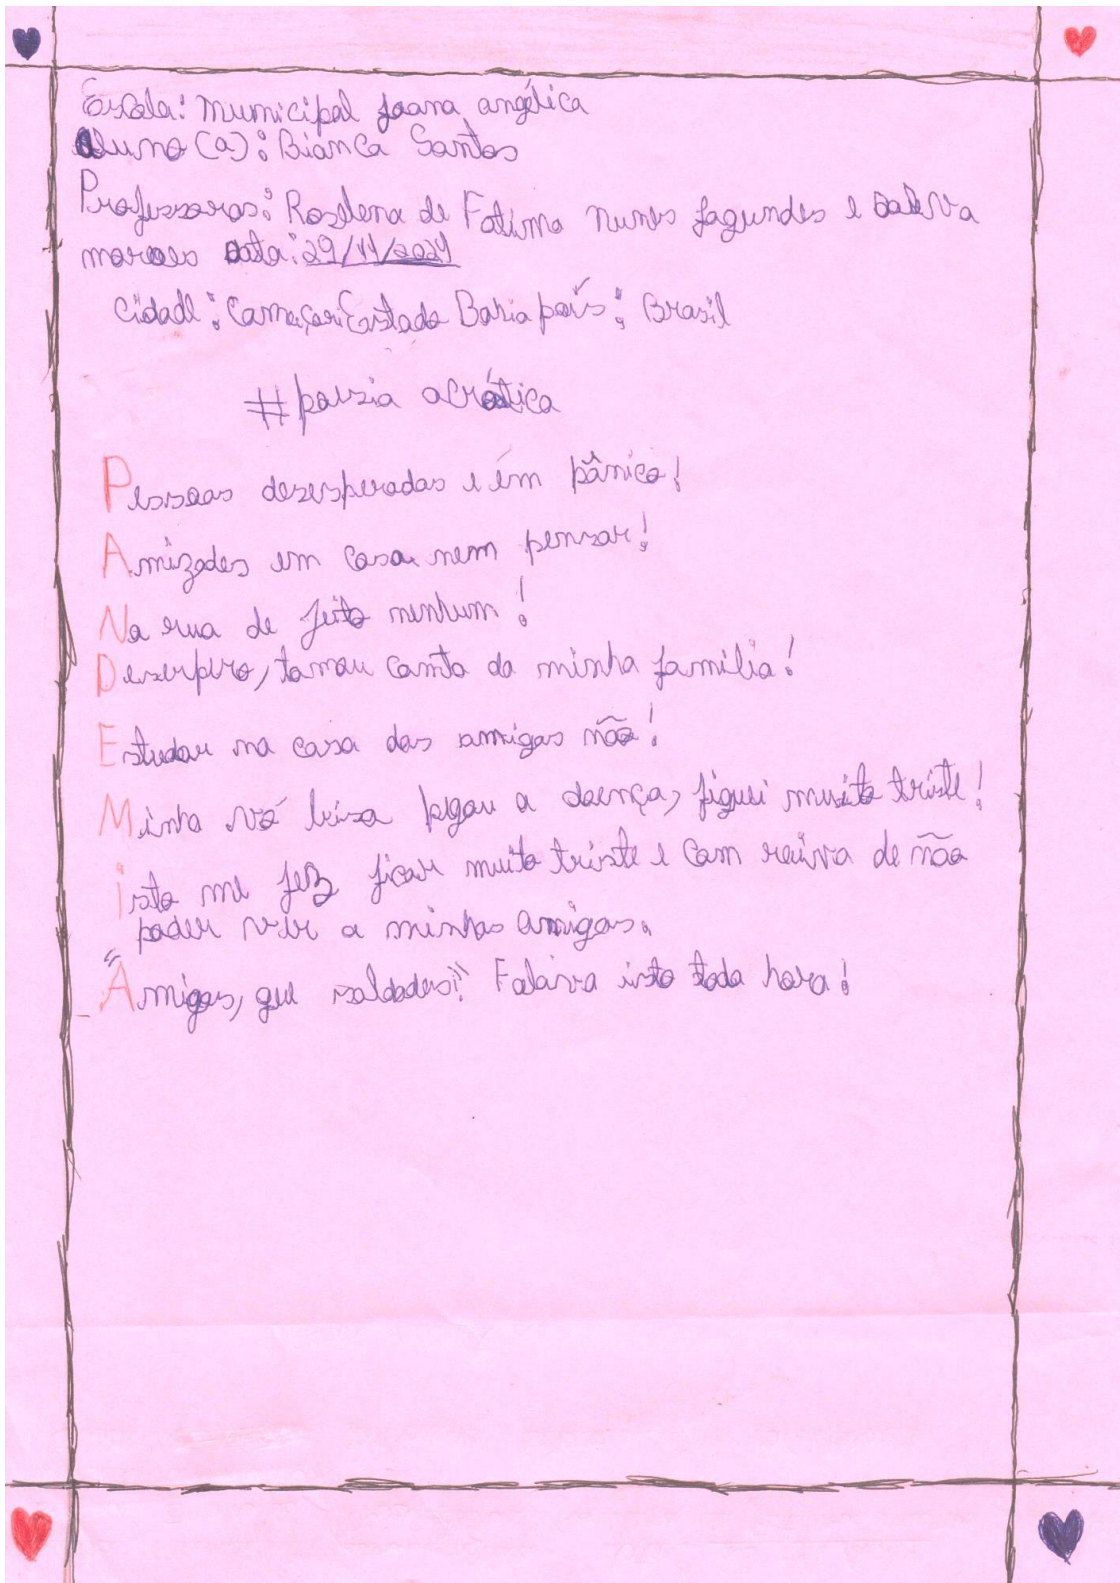 Escola: Municipal Joana angélica
Aluno (a): Bianca Santos
Professoras: Roselena de Fatima Nunes fagundes e
moraes data: 29/11/2021
cidade: Camaçari Estado Bahia país: Brasil
# poesia acróstica
Pessoas desesperadas e em pânico!
Amizades em casa nem pensar!
Na rua de jeito nenhum!
Desespero, tomou conta da minha família!
Estudar na casa das amigas não!
Minha vó luiza pegou a doença, fiquei muito triste!
isto me fez ficar muito triste e com raiva de não
poder ver a minhas amigas.
"Amigas, que saldades!" Falava isto toda hora!